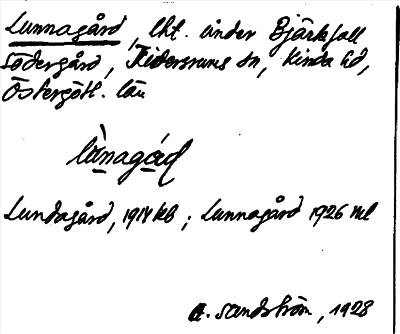 Lunnagård, lht. under Bjärkfall
Södergård, Tidersrums sn, Kinda hd,
Östergötl. län
lùnagád
Lundagård, 1914 kb; Lunnagård 1926 ml
A. Sandström, 1928